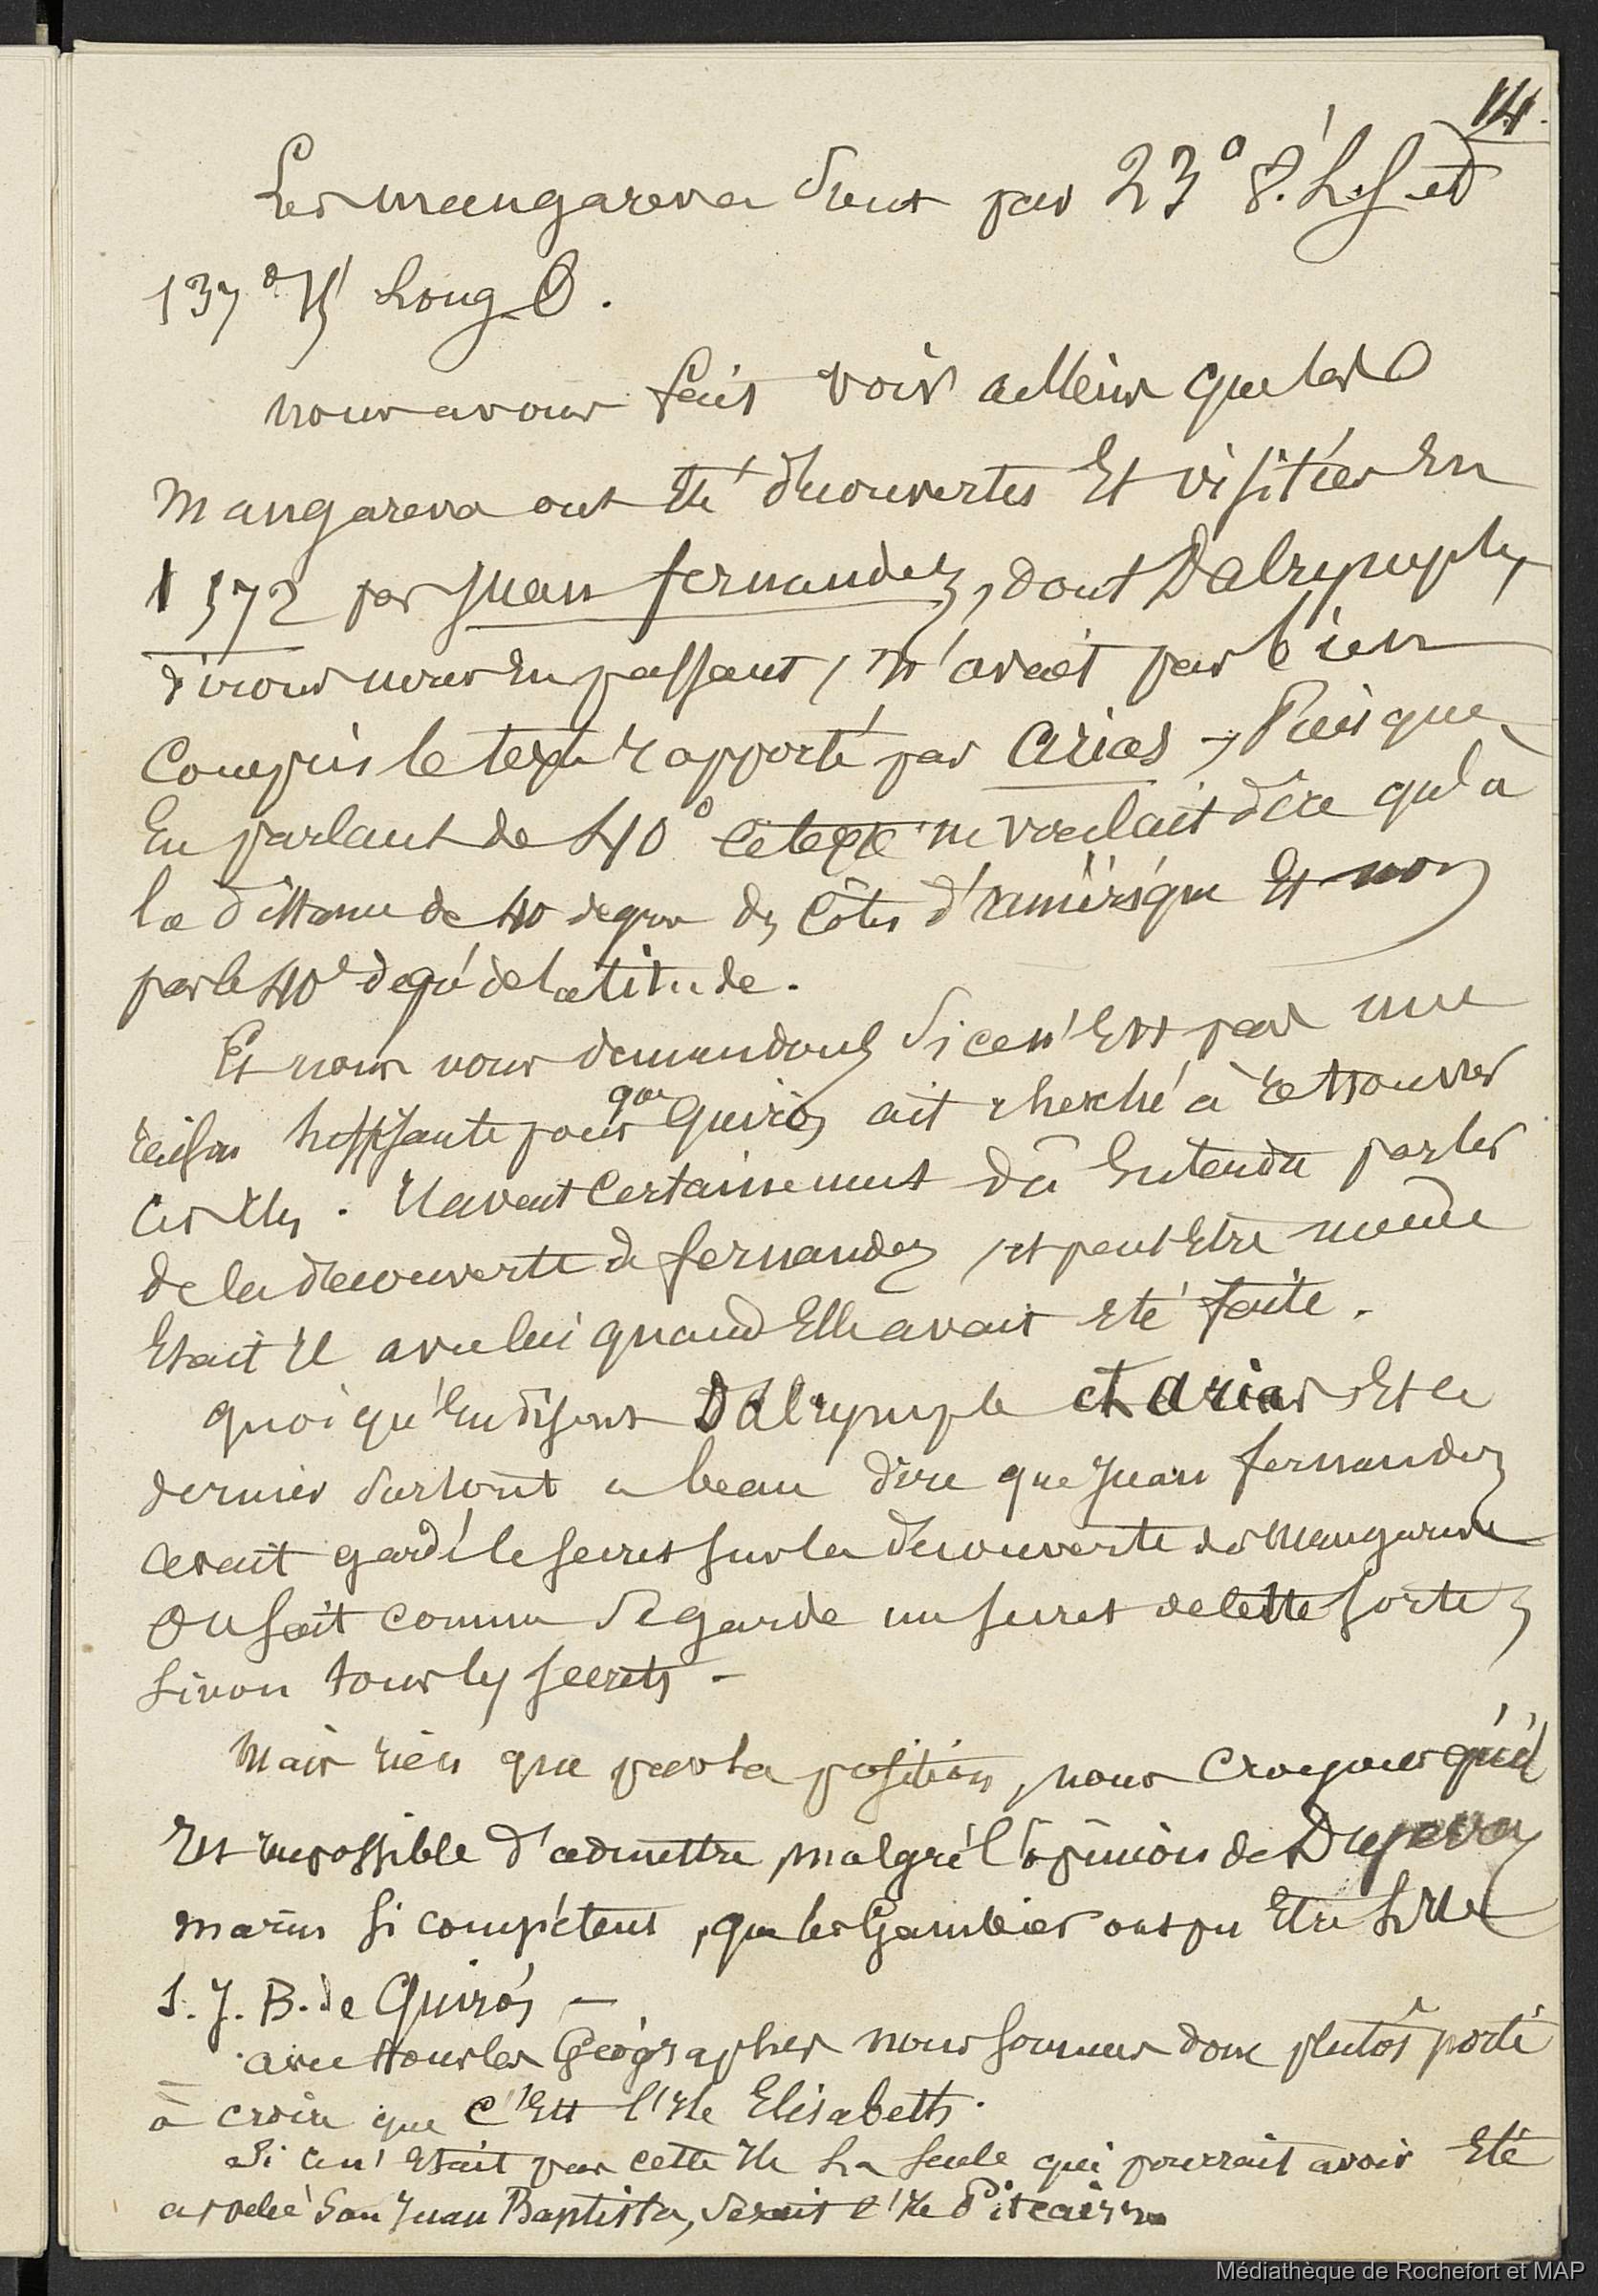 14.
Les mangareva sont par 23° 8.' L. S. et
137° 15' Long O.
nous avons fait voir ailleurs que les
Mangareva ont été découvertes Et visitées En
1572 par Juan fernandez, dont Dalrymple,
dirons nous En passant, n'avait pas bien
Compris le texte rapporté par Arias, Puisque
En parlant de 40° Ce texte ne voulait dire qu'à
la distance de 40 degrés des Côtes d'amérique Et non
par le 40e degré de latitude.
Et nous nous demandons Si ce n'Est pas une
raison suffisante pour que Quiros ait cherché à retrouver
Ces Iles. Il avait Certainement dû Entendre parler
de la découverte de fernandez, et peut Etre même
Etait Il avec lui quand Elle avait Eté faite.
quoi qu'En disent Dalrymple et Arias Et ce
dernier surtout a beau dire que Juan fernandez
avait gardé le secret sur la découverte des Mangareva
On sait comme se garde un secret de cette sorte,
sinon tous les secrets -
Mais rien que par la position, nous Croyons qu'il
Est impossible d'admettre, malgré l'opinion de Duperrey
marin si compétent, que les Gambier ont pu Etre l'Ile
S. J. B. de Quirós -
avec tous les Géographes nous sommes donc plutôt porté
à croire que C'Est l'Ile Elisabeth.
Si ce n'Etait pas cette Ile La seule qui pourrait avoir Eté
appelée San Juan Baptista, serait l'Ile Pitcairn
Médiathèque de Rochefort et MAP